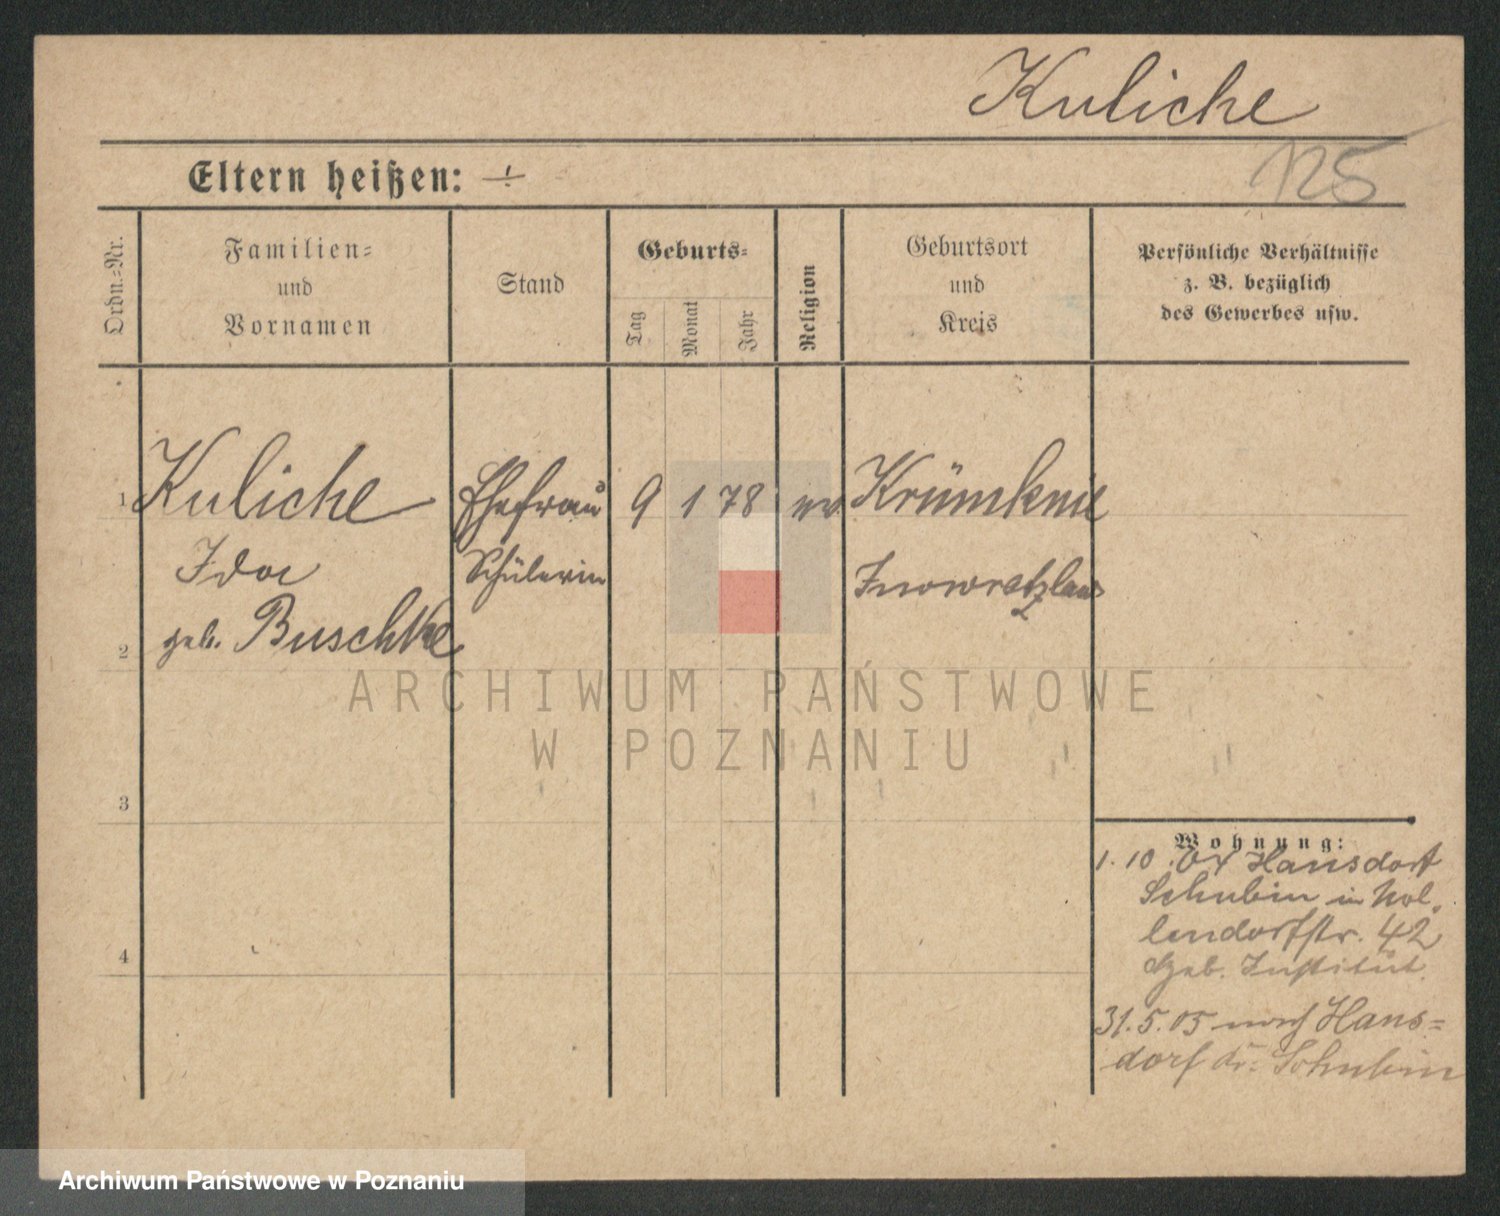 Kuliche
125
Eltern heißen: ÷
Ordn.=Nr.
Familien=
und
Vornamen
Stand
Geburts=
Tag
Monat
Jahr
Religion
Geburtsort
und
Kreis
Persönliche Verhältnisse
z. B. bezüglich
des Gewerbes usw.
1 Kuliche Ehefrau 9 1 78 ev. Krümknie
Ida Schülerin Inowratzlaw
2 geb. Buschke
3
4
Wohnung:
1. 10. 04 Hansdorf
Schubin in Nol-
lendorfstr. 42
Heb. Institut.
31. 5. 05 nach Hans=
dorf Kr. Schubin
ARCHIWUM PAŃSTWOWE
W POZNANIU
Archiwum Państwowe w Poznaniu